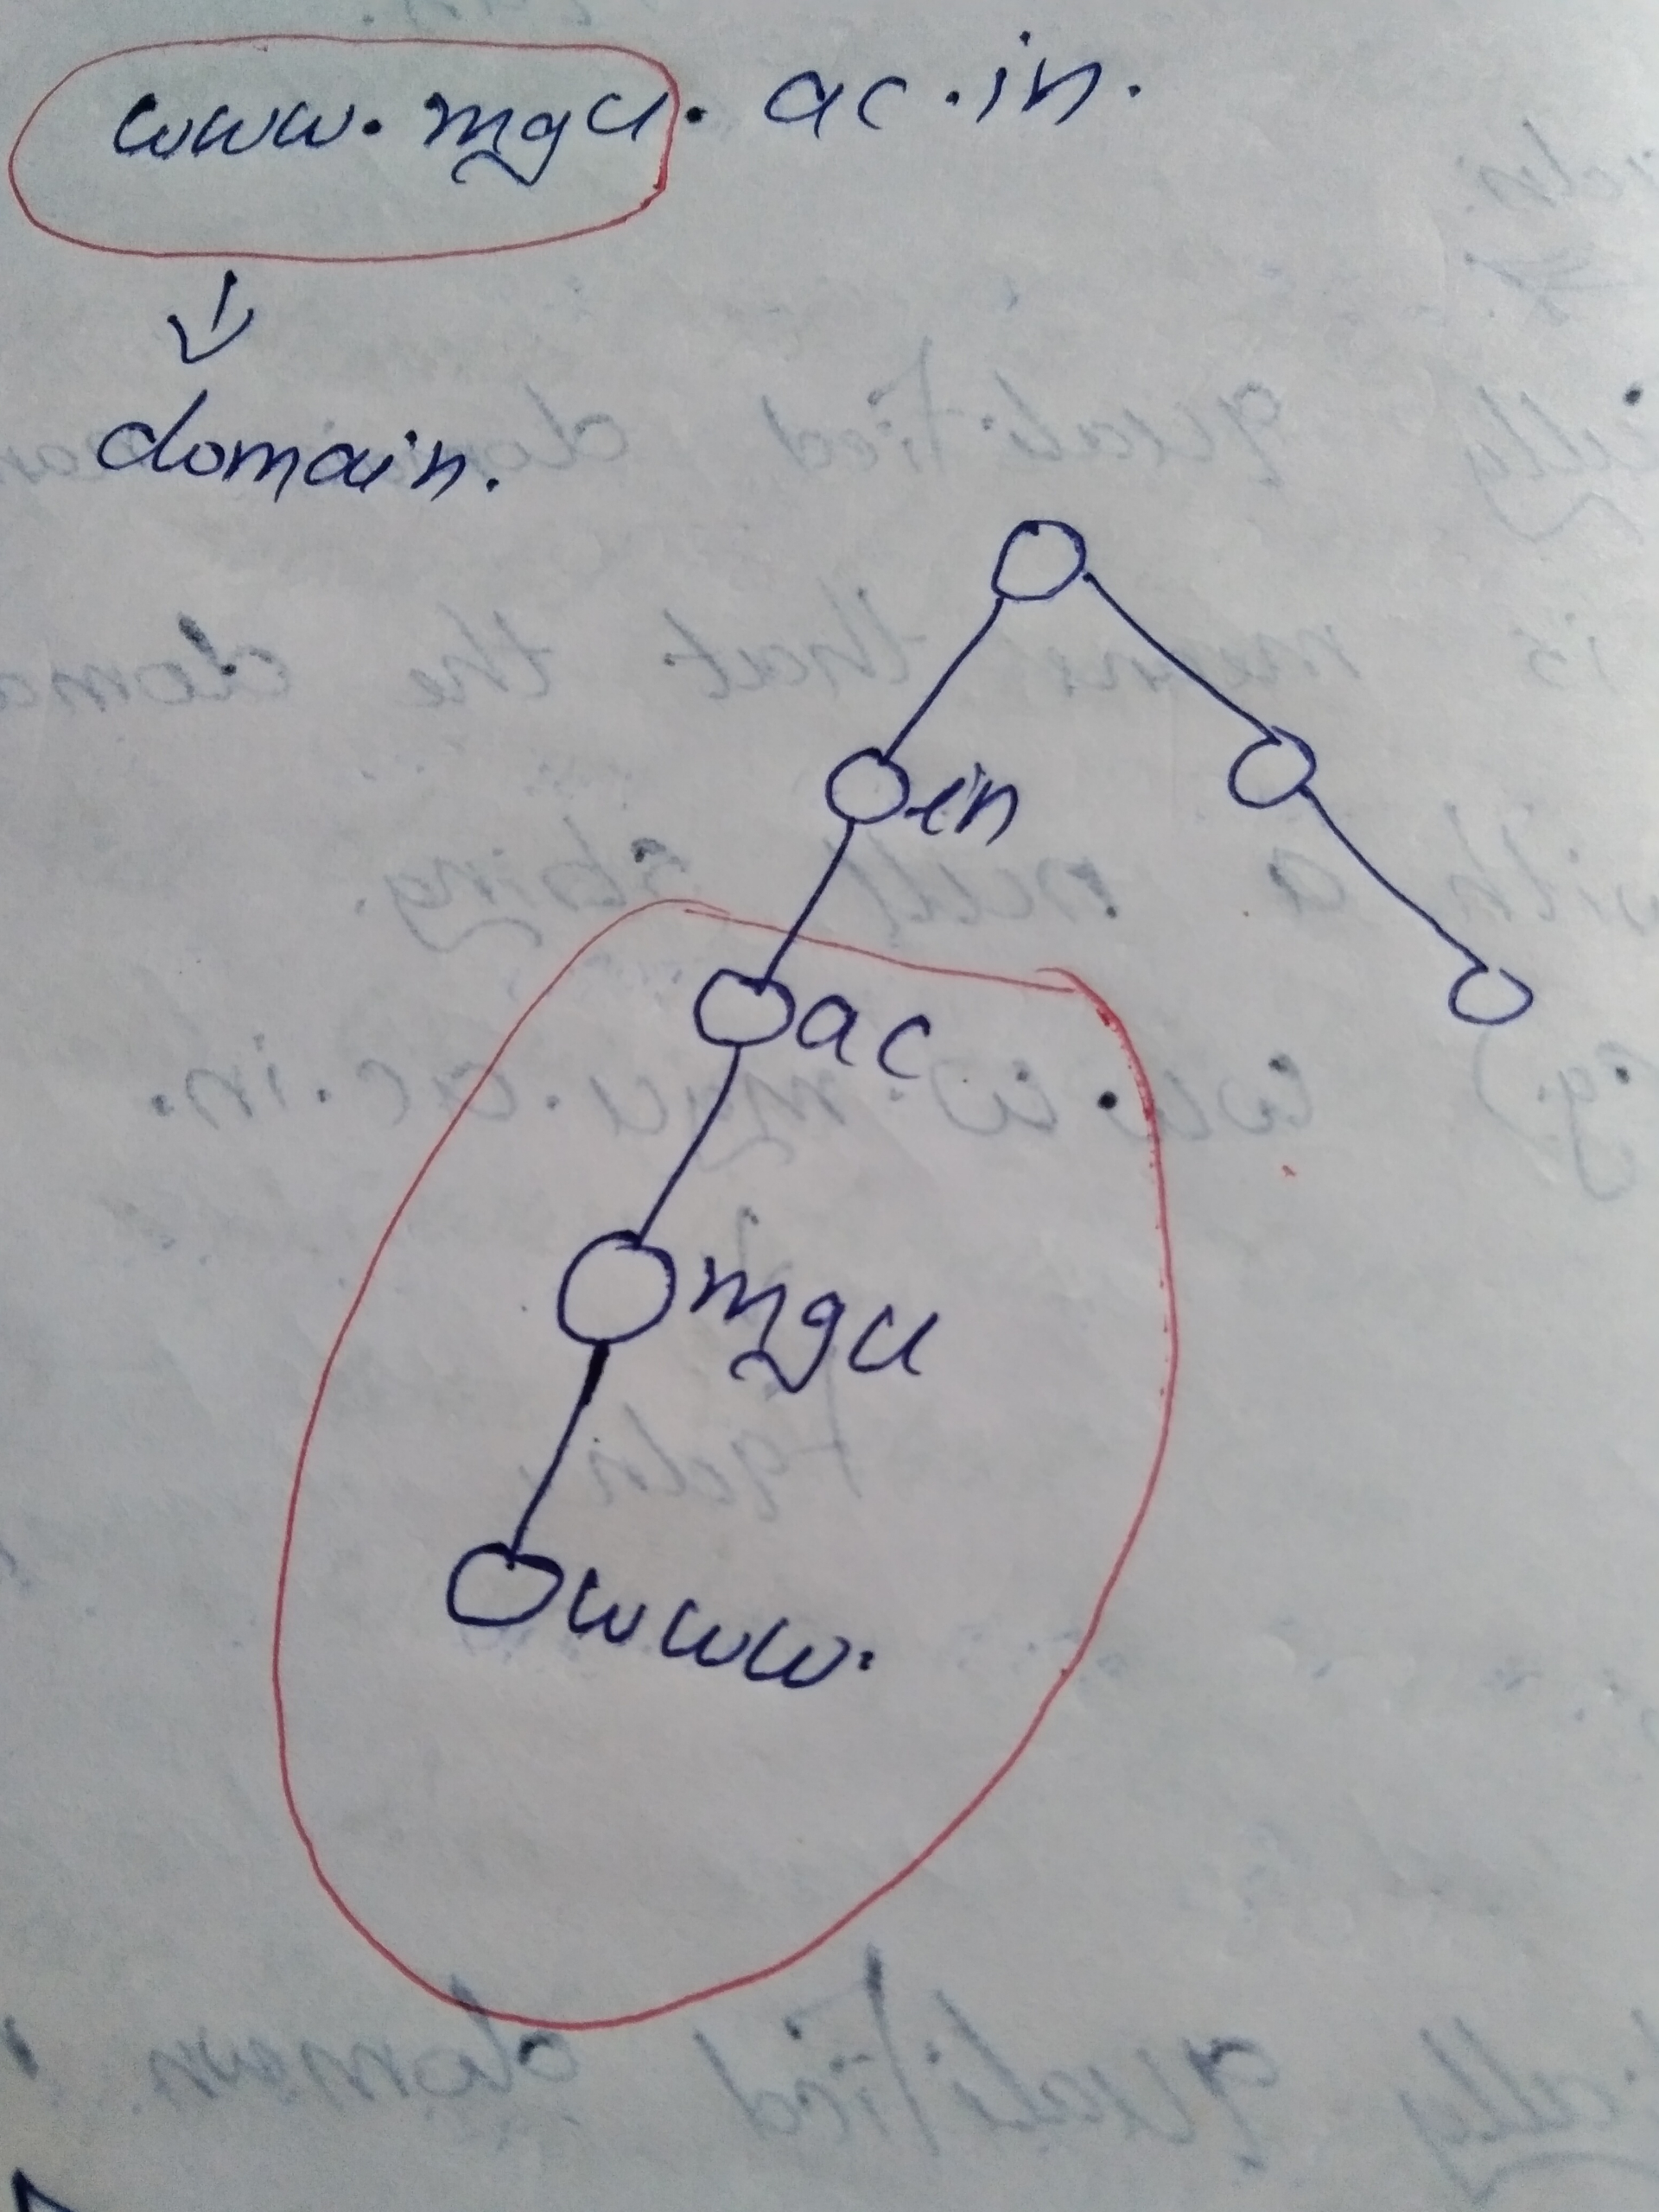 www.mgu.ac.in.
domain.
in
ac
mgu
www.